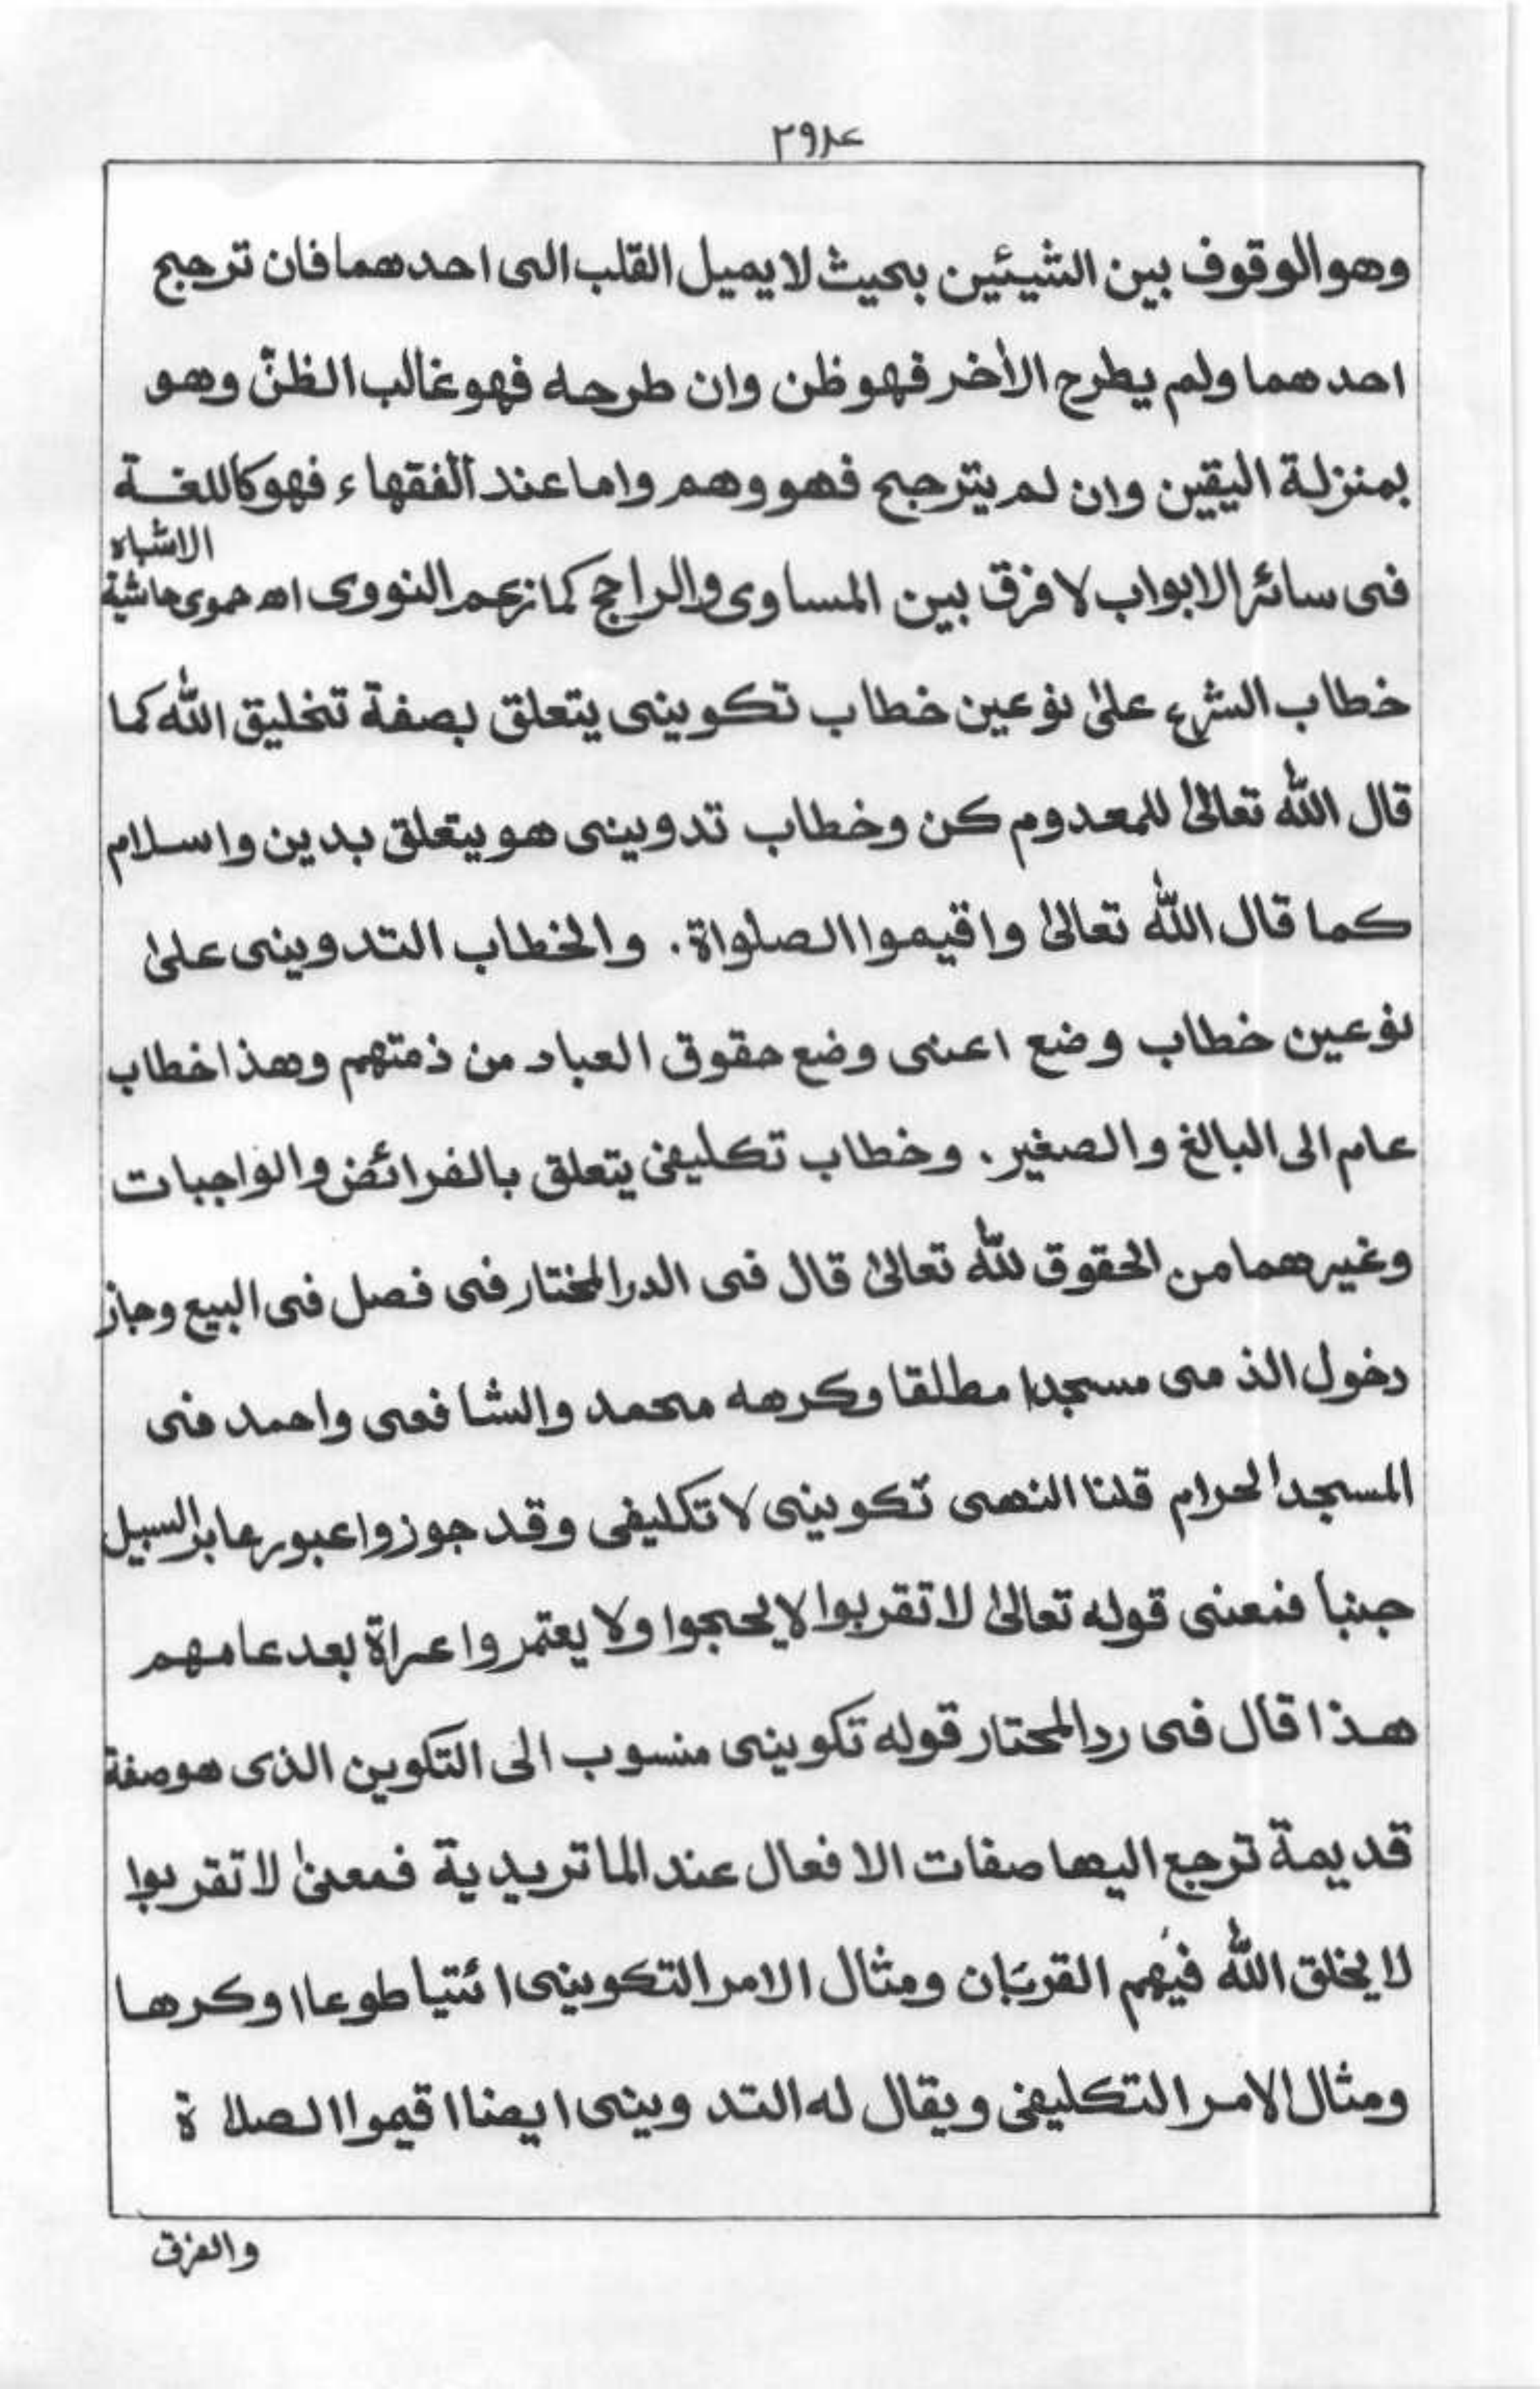 ٢٩٨
وهو الوقوف بين الشيئين بحيث لا يميل القلب الى احدهما فان ترجح
احدهما ولم يطرح الأخر فهو ظن وان طرحه فهو غالب الظنّ وهو
بمنزلة اليقين وان لم يترجح فهو وهم واما عند الفقهاء فهو كاللغة
فى سائر الابواب لا فرق بين المساوى والراجح كما زعم النووى اھ حموى حاشية الاشباه
خطاب الشرع علىٰ نوعين خطاب تكوينى يتعلق بصفة تخليق الله كما
قال الله تعالىٰ للمعدوم كن وخطاب تدوينى هو يتعلق بدين واسلام
كما قال الله تعالىٰ واقيموا الصلواة. والخطاب التدوينى علىٰ
نوعين خطاب وضع اعنى وضع حقوق العباد من ذمتهم وهذا خطاب
عام الى البالغ والصغير. وخطاب تكليفى يتعلق بالفرائض والواجبات
وغيرهما من الحقوق لله تعالىٰ قال فى الدر المختار فى فصل فى البيع وجاز
دخول الذمى مسجدا مطلقا وكرهه محمد والشافعى واحمد فى
المسجد الحرام قلنا النهى تكوينى لا تكليفى وقد جوزوا عبور عابر السبيل
جنبا فمعنى قوله تعالىٰ لا تقربوا لا يحجوا ولا يعتمروا عراة بعد عامهم
هذا قال فى رد المحتار قوله تكوينى منسوب الى التكوين الذى هو صفة
قديمة ترجع اليها صفات الافعال عند الماتريدية فمعنىٰ لا تقربوا
لا يخلق الله فيهم القربان ومثال الامر التكوينى ائتيا طوعا او كرها
ومثال الامر التكليفى ويقال له التدوينى ايضا اقيموا الصلاة
والفرق